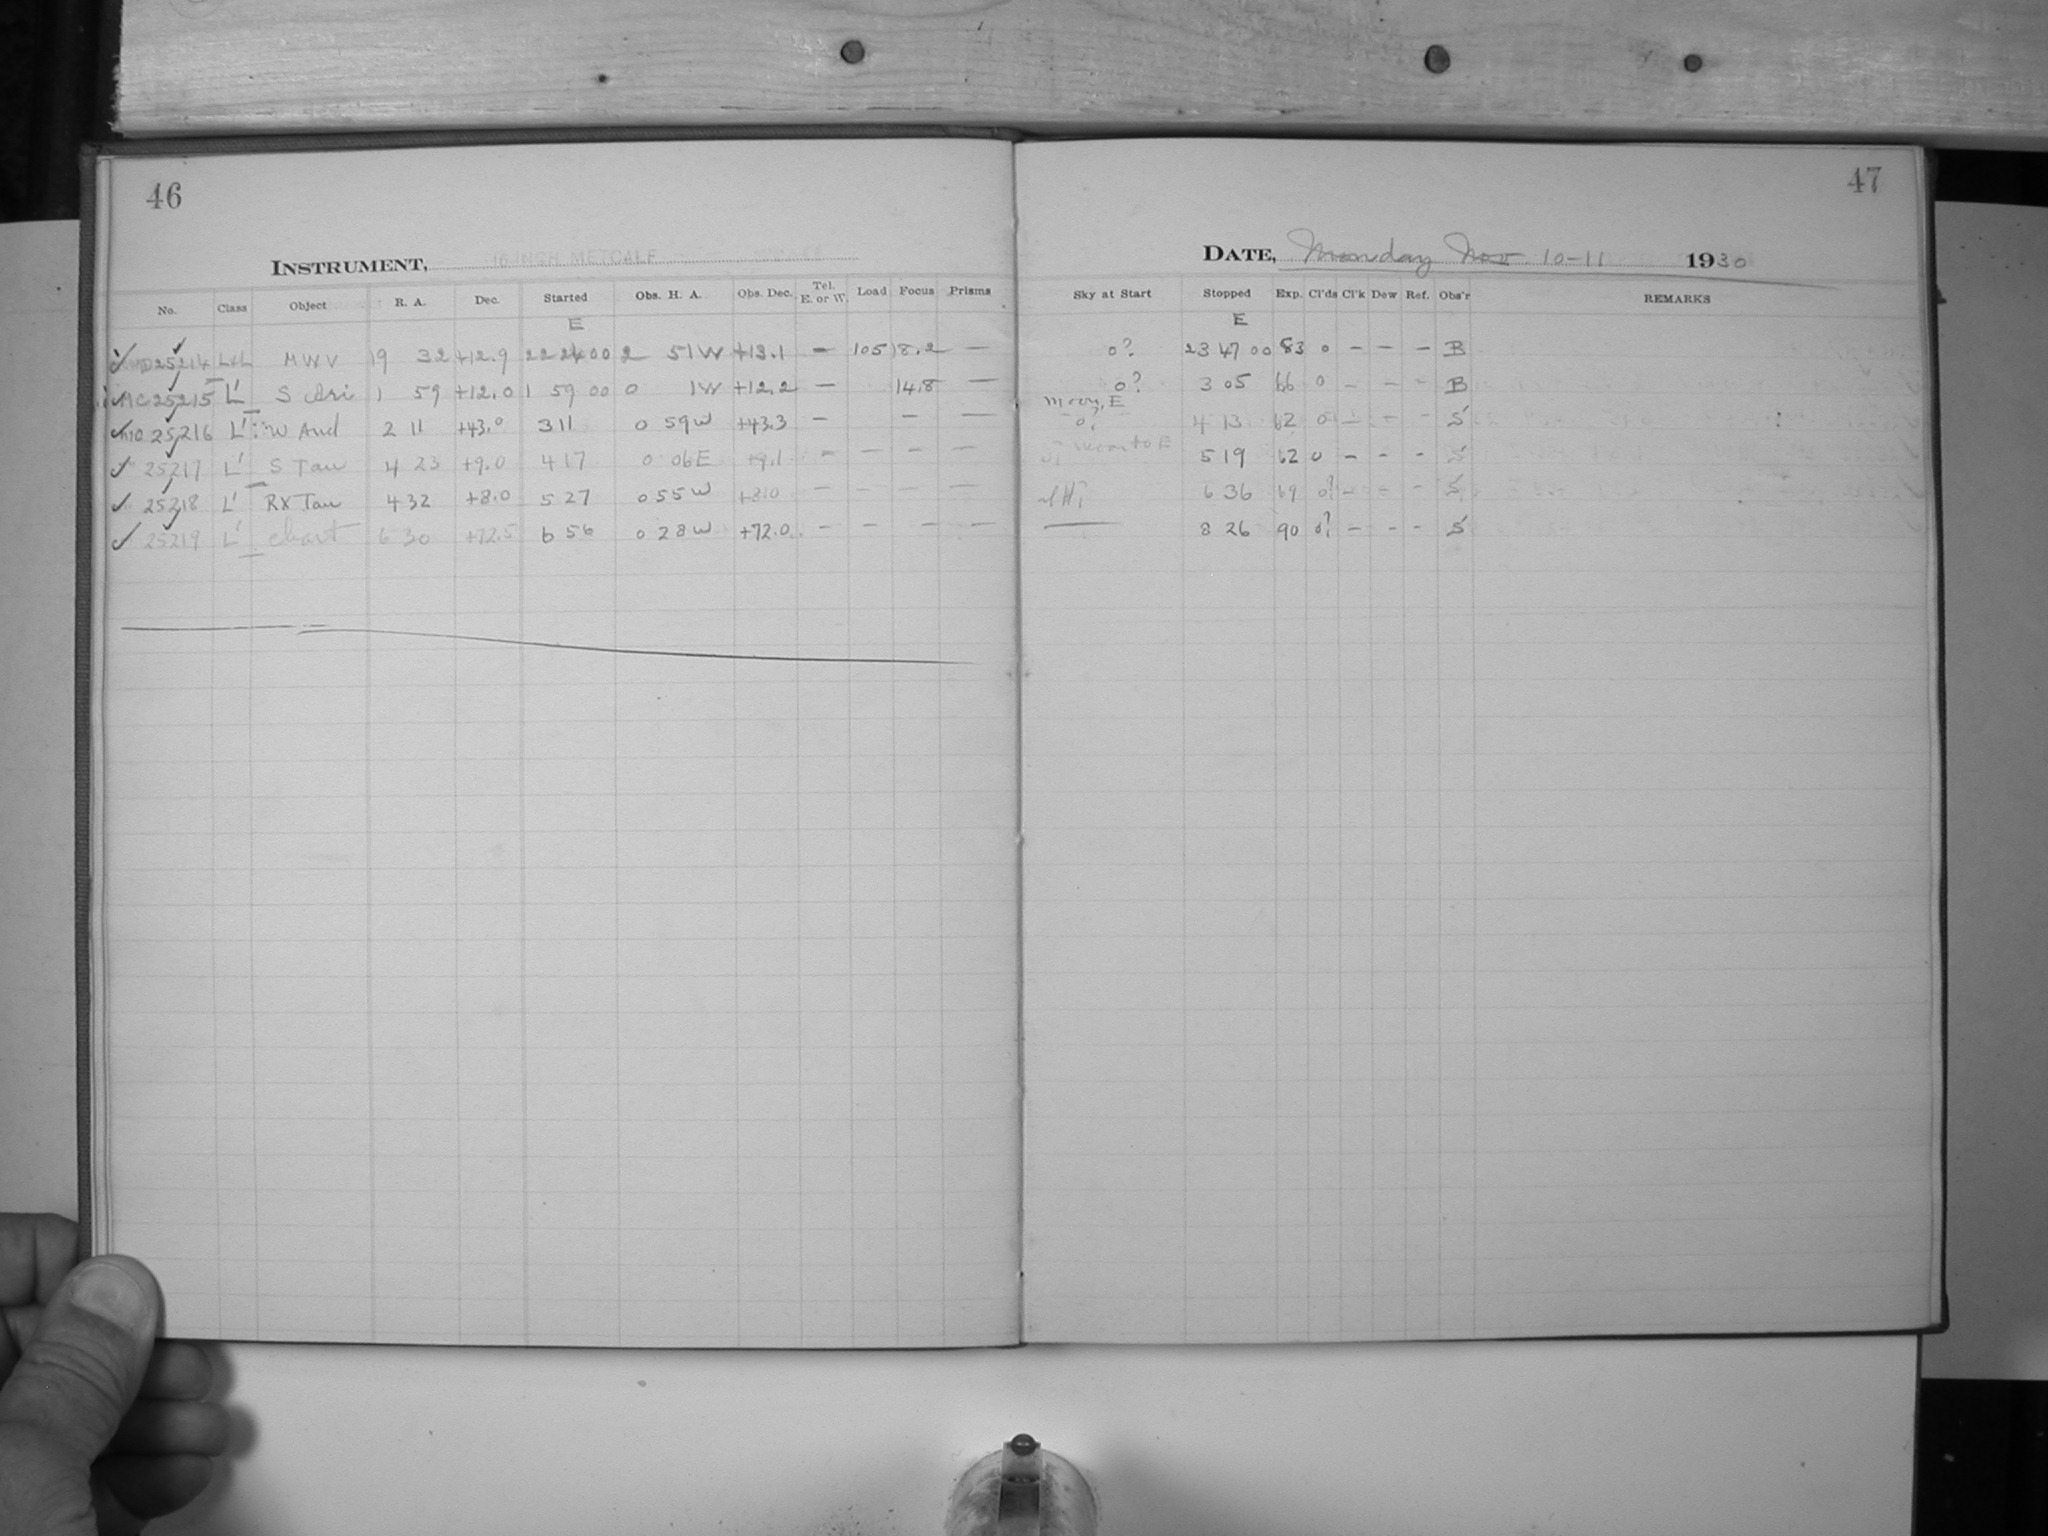 46
INSTRUMENT, 16 INCH METCALF
No. Class Object R. A. Dec. Started Obs. H. A. Obs. Dec. Tel. E. or W. Load Focus Prisms
E
25214 MWV 19 32 +12.9 22 24 00 2 51W +13.1 — 105 —
MC 25215 L' S Ari 1 59 +12.0 1 59 00 0 1W +12.2 — 14.8 —
25216 L' W And 2 11 +43.0 3 11 0 59W +43.3 — — —
25217 L' S Tau 4 23 +9.0 4 17 0 06E +9.1 — — — —
25218 L' RX Tau 4 32 +8.0 5 27 0 55W +8.0 — — — —
25219 L' Chart 6 30 +72.5 6 56 0 28W +72.0 — — — —
47
DATE, Monday Nov 10-11 1930
Sky at Start Stopped Exp. Cl'ds Cl'k Dew Ref. Obs'r REMARKS
E
0? 23 47 00 83 0 — — — B
0? 3 05 66 0 — — — B
Moon, E
0? 4 13 62 0 — — — S
Moon to E
5 19 62 0 — — — S
6 36 69 0? — — — S
— 8 26 90 0? — — — S